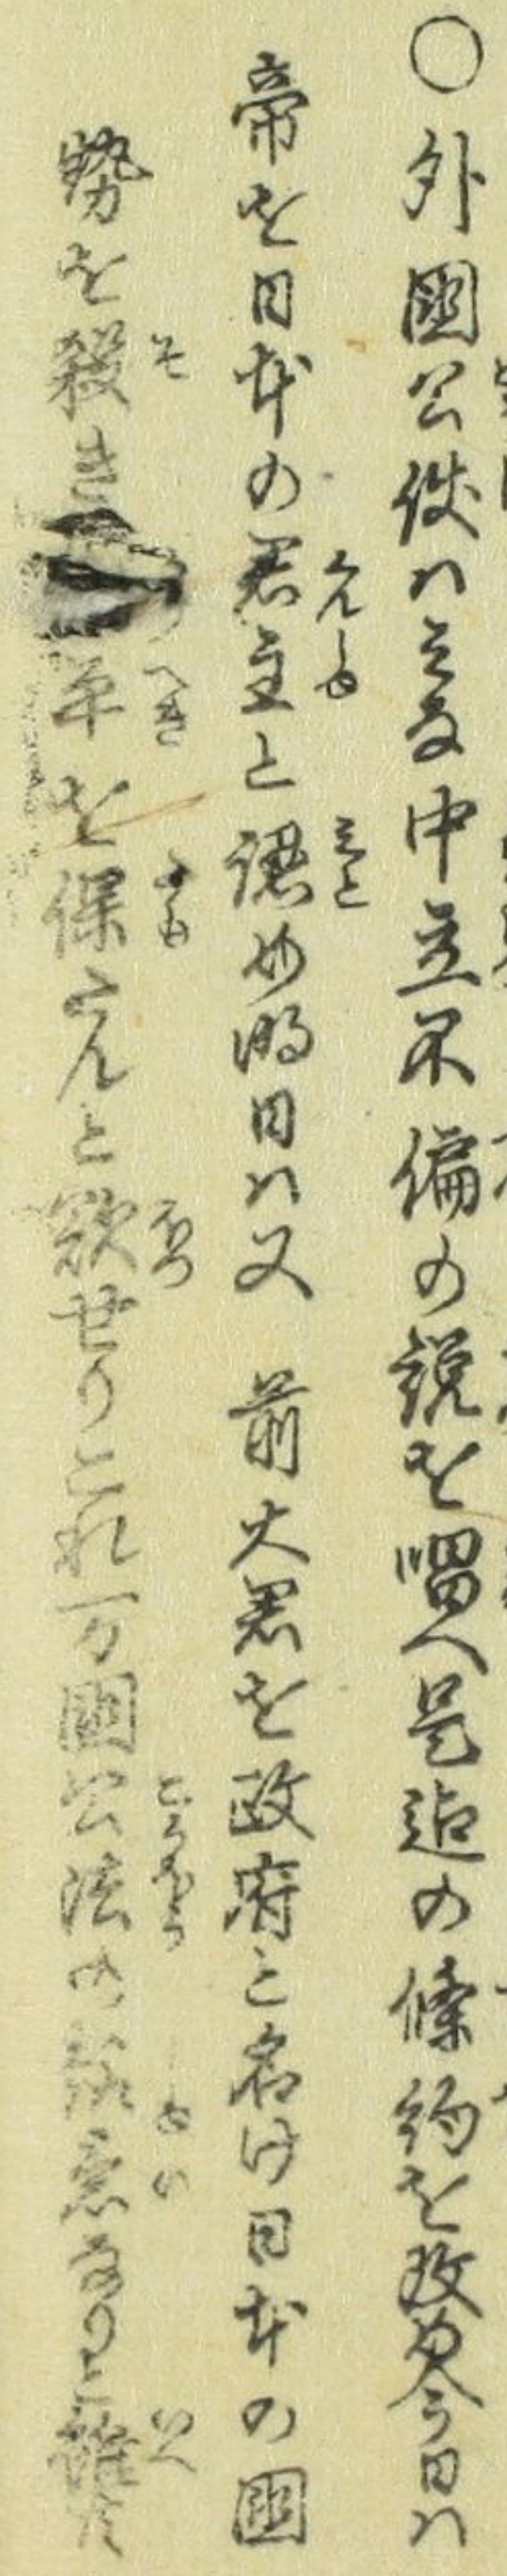 ○外國公使ハミな中立不偏の説を唱へ是迠の條約を改め今日ハ
帝を日本の君主と認め明日ハ又　前大君を政府と名け日本の國
勢を殺き平を保さんと欲せりこれ万國公法の趣意なりと雖